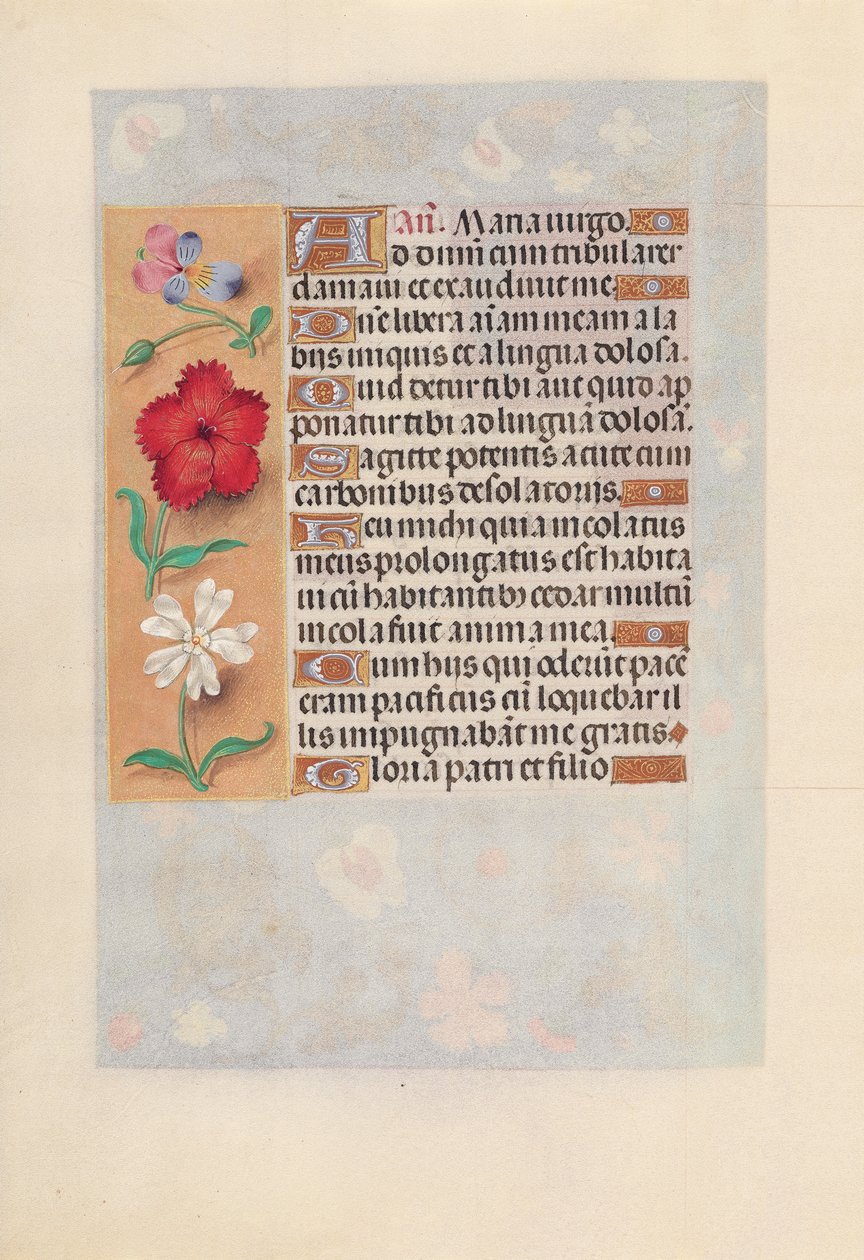 An̄. Maria uirgo.
Ad dūm cum tribularer
clamaui et exaudiuit me.
Dn̄e libera aīam meam a la
biis iniquis et a lingua dolosa.
Quid detur tibi aut quid ap
ponatur tibi ad linguā dolosā.
Sagitte potentis acute cum
carbonibus desolatoriis.
Heu michi quia incolatus
meus prolongatus est habita
ui cū habitantibꝫ cedar multū
incola fuit anima mea.
Cum hiis qui oderūt pacē
eram pacificus cū loquebar il
lis impugnabāt me gratis.
Gloria patri et filio